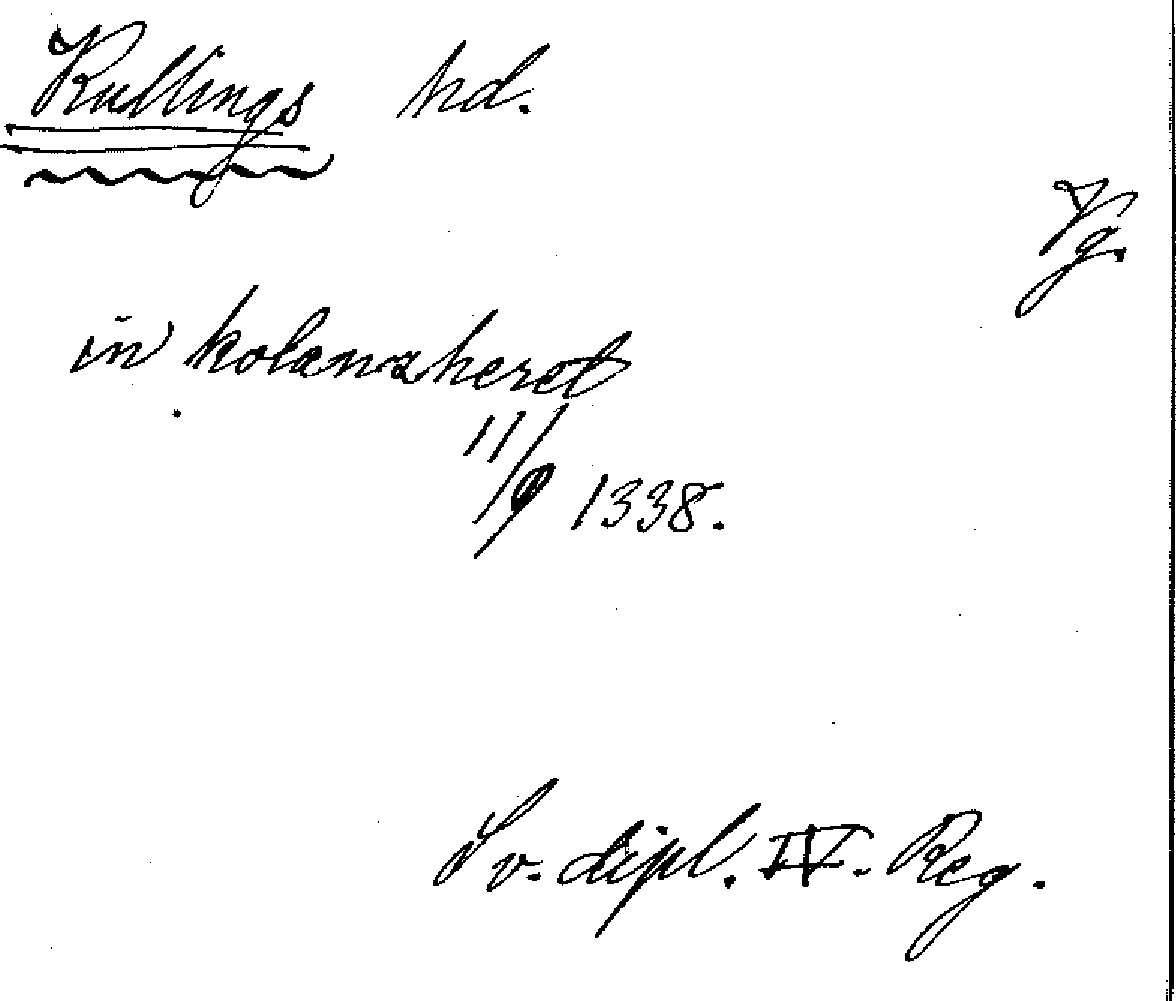 Kullings hd.
Vg.
in kolanzheret
11/9 1338.
Sv. dipl. IV. Reg.